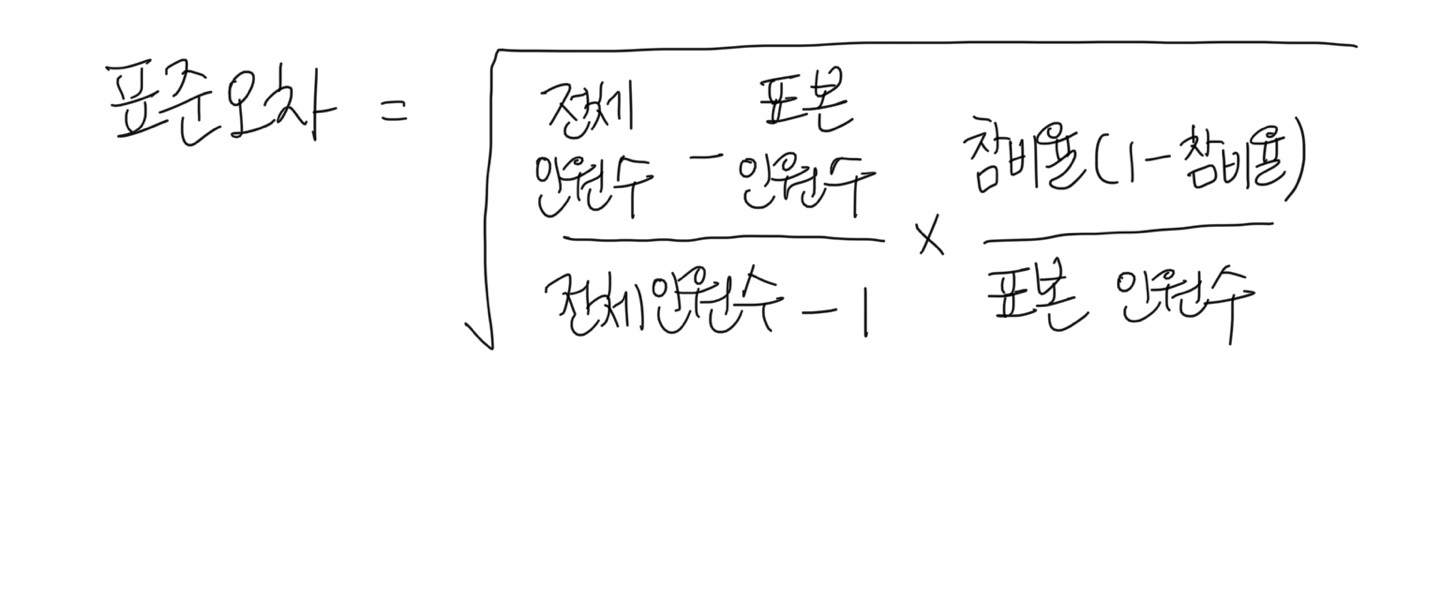 표준오차 = √
전체 인원수 - 표본 인원수
전체인원수 - 1
×
참비율(1-참비율)
표본 인원수